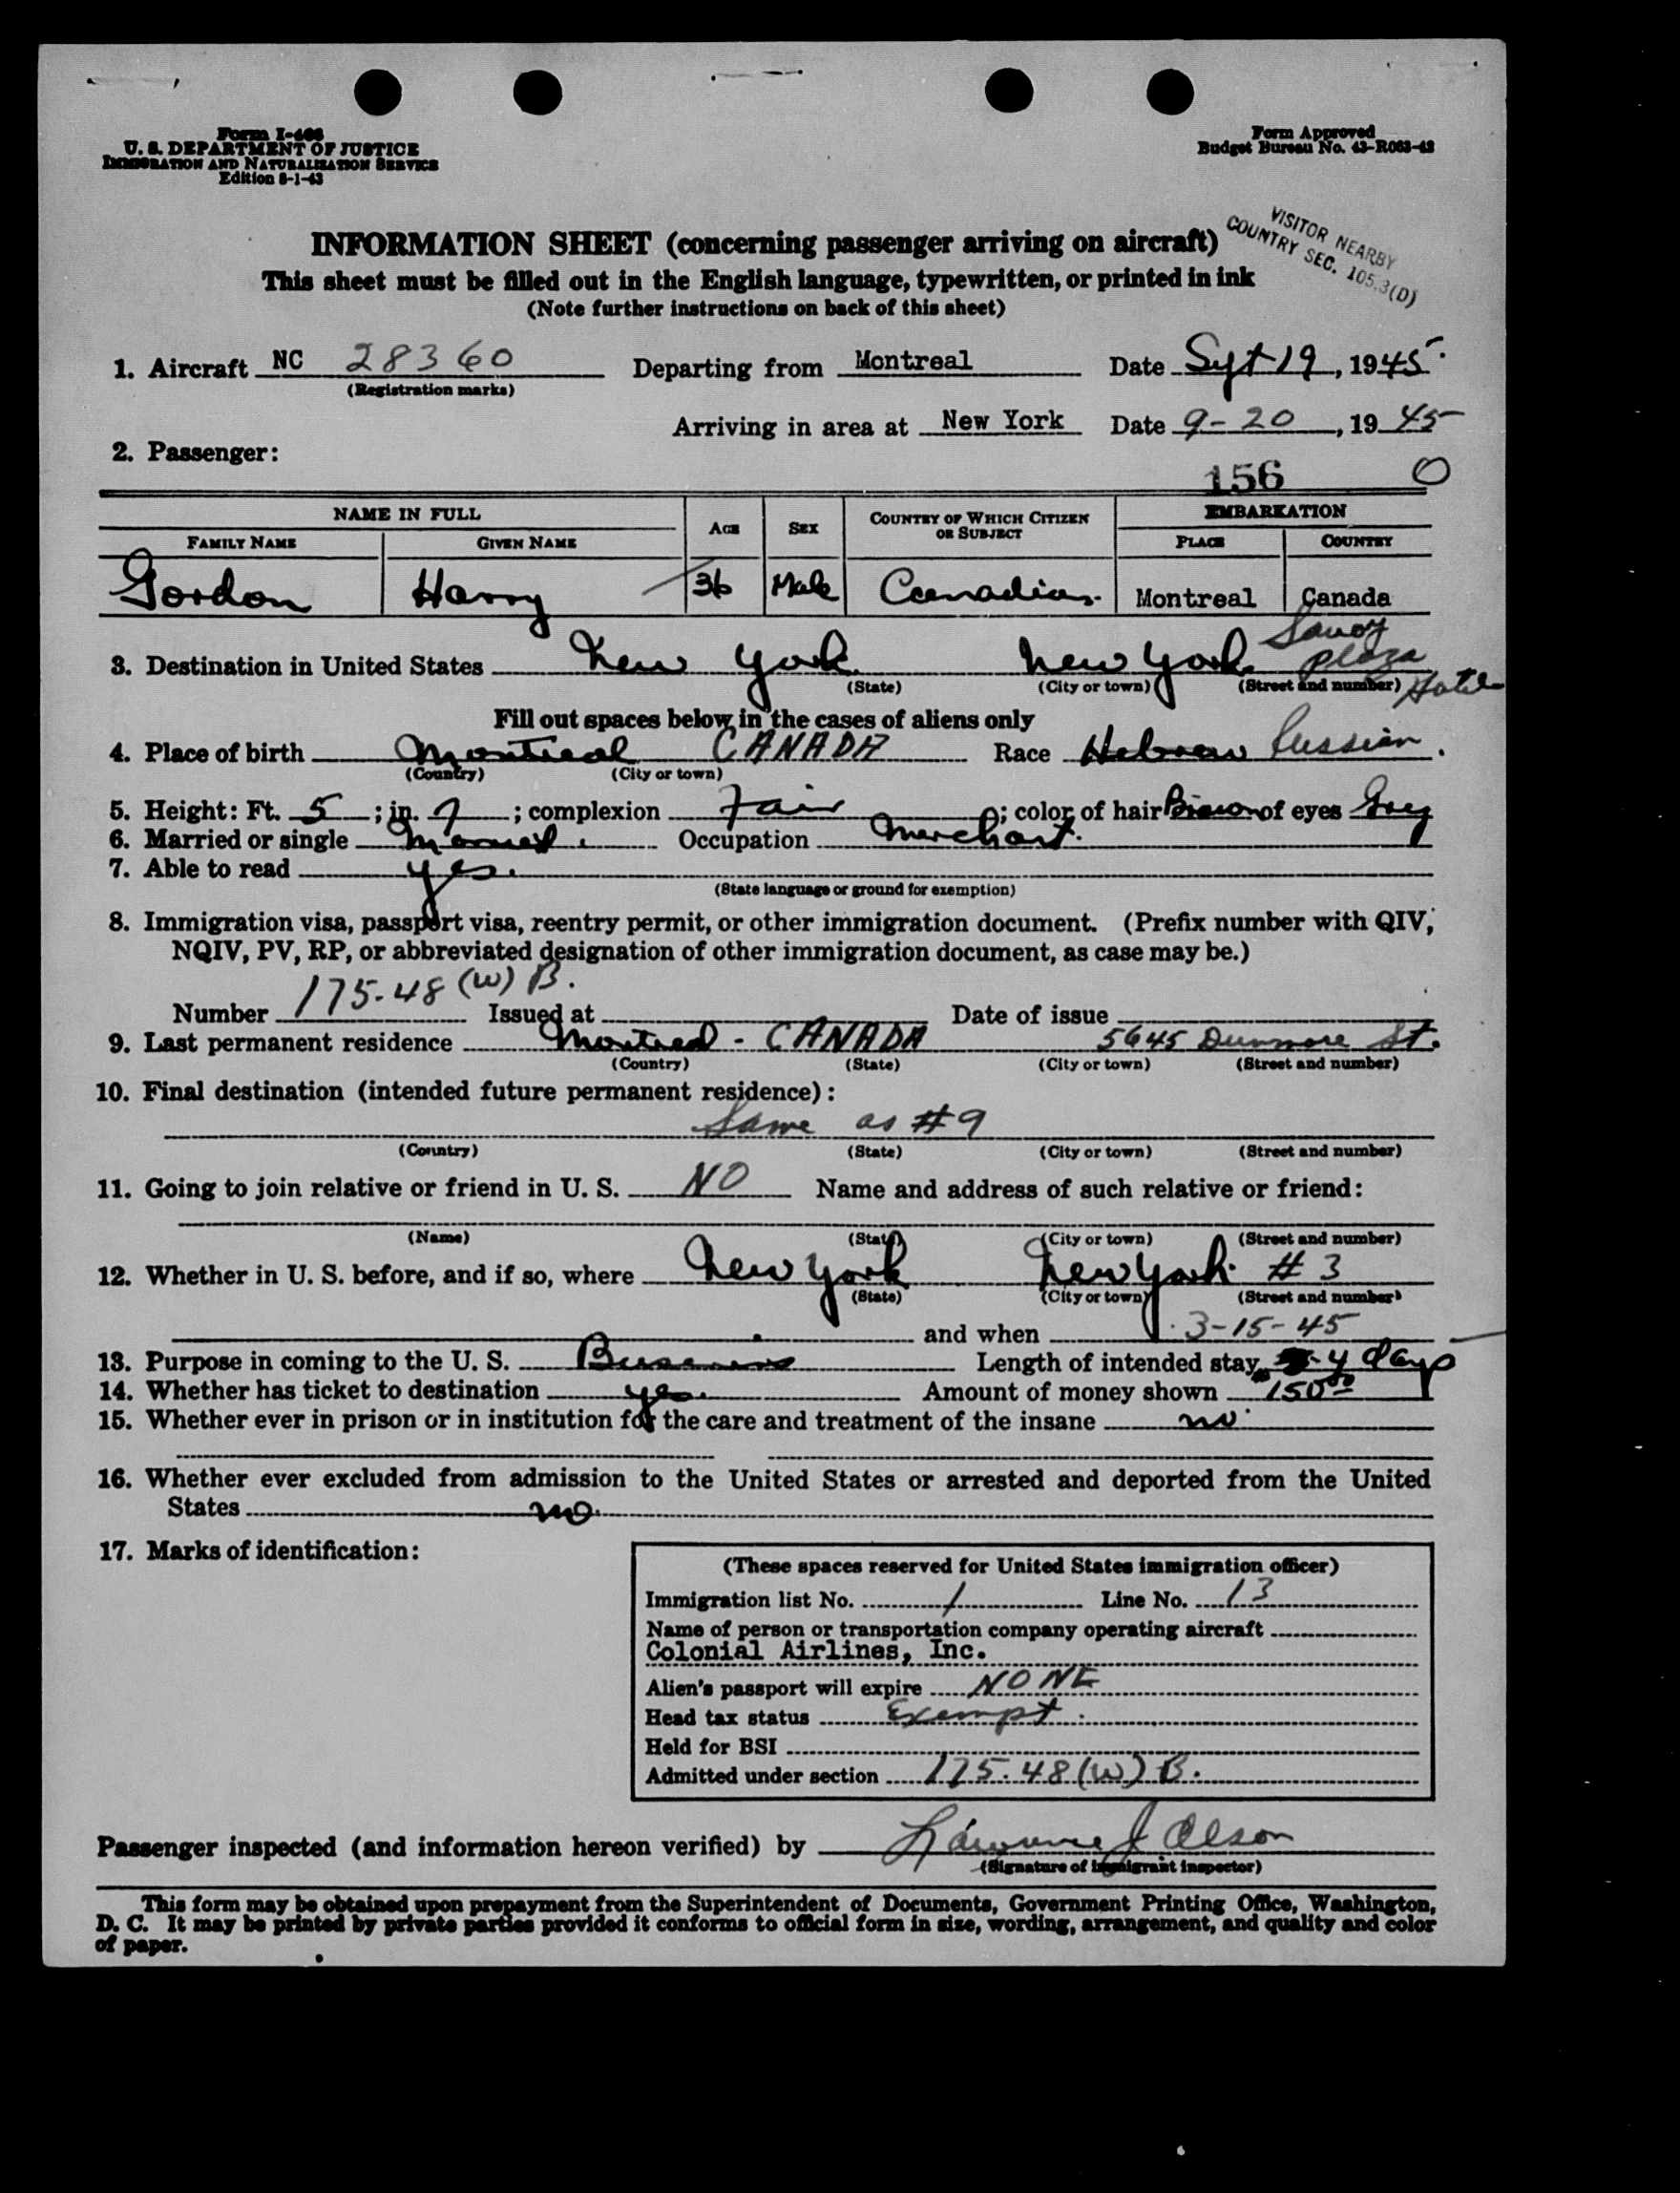 Form I-466
U. S. DEPARTMENT OF JUSTICE
IMMIGRATION AND NATURALIZATION SERVICE
Edition 8-1-43
Form Approved
Budget Bureau No. 43-R063-43
VISITOR NEARBY
COUNTRY SEC. 105.3(D)
INFORMATION SHEET (concerning passenger arriving on aircraft)
This sheet must be filled out in the English language, typewritten, or printed in ink
(Note further instructions on back of this sheet)
1. Aircraft NC 28360 Departing from Montreal Date Sept 19, 1945.
(Registration marks)
Arriving in area at New York Date 9-20, 19 45
2. Passenger:
156 0
NAME IN FULL AGE SEX COUNTRY OF WHICH CITIZEN OR SUBJECT EMBARKATION
FAMILY NAME GIVEN NAME PLACE COUNTRY
Gordon Harry 36 Male Canadian. Montreal Canada
3. Destination in United States New York New York Savoy Plaza Hotel
(State) (City or town) (Street and number)
Fill out spaces below in the cases of aliens only
4. Place of birth Montreal CANADA Race Hebrew Russian.
(Country) (City or town)
5. Height: Ft. 5; in. 7; complexion Fair; color of hair Brown of eyes Grey
6. Married or single Married. Occupation Merchant.
7. Able to read yes.
(State language or ground for exemption)
8. Immigration visa, passport visa, reentry permit, or other immigration document. (Prefix number with QIV,
NQIV, PV, RP, or abbreviated designation of other immigration document, as case may be.)
Number 175.48 (W) B. Issued at Date of issue
9. Last permanent residence Montreal - CANADA 5645 Dunmore St.
(Country) (State) (City or town) (Street and number)
10. Final destination (intended future permanent residence):
Same as #9
(Country) (State) (City or town) (Street and number)
11. Going to join relative or friend in U. S. NO Name and address of such relative or friend:
(Name) (State) (City or town) (Street and number)
12. Whether in U. S. before, and if so, where New York New York # 3
(State) (City or town) (Street and number)
and when 3-15-45
13. Purpose in coming to the U. S. Business Length of intended stay 4 days
14. Whether has ticket to destination yes. Amount of money shown 150.00
15. Whether ever in prison or in institution for the care and treatment of the insane no.
16. Whether ever excluded from admission to the United States or arrested and deported from the United
States no.
17. Marks of identification:
(These spaces reserved for United States immigration officer)
Immigration list No. 1 Line No. 13
Name of person or transportation company operating aircraft
Colonial Airlines, Inc.
Alien's passport will expire NONE
Head tax status Exempt.
Held for BSI
Admitted under section 175.48 (W) B.
Passenger inspected (and information hereon verified) by Lawrence J Olson
(Signature of immigrant inspector)
This form may be obtained upon prepayment from the Superintendent of Documents, Government Printing Office, Washington,
D. C. It may be printed by private parties provided it conforms to official form in size, wording, arrangement, and quality and color
of paper.